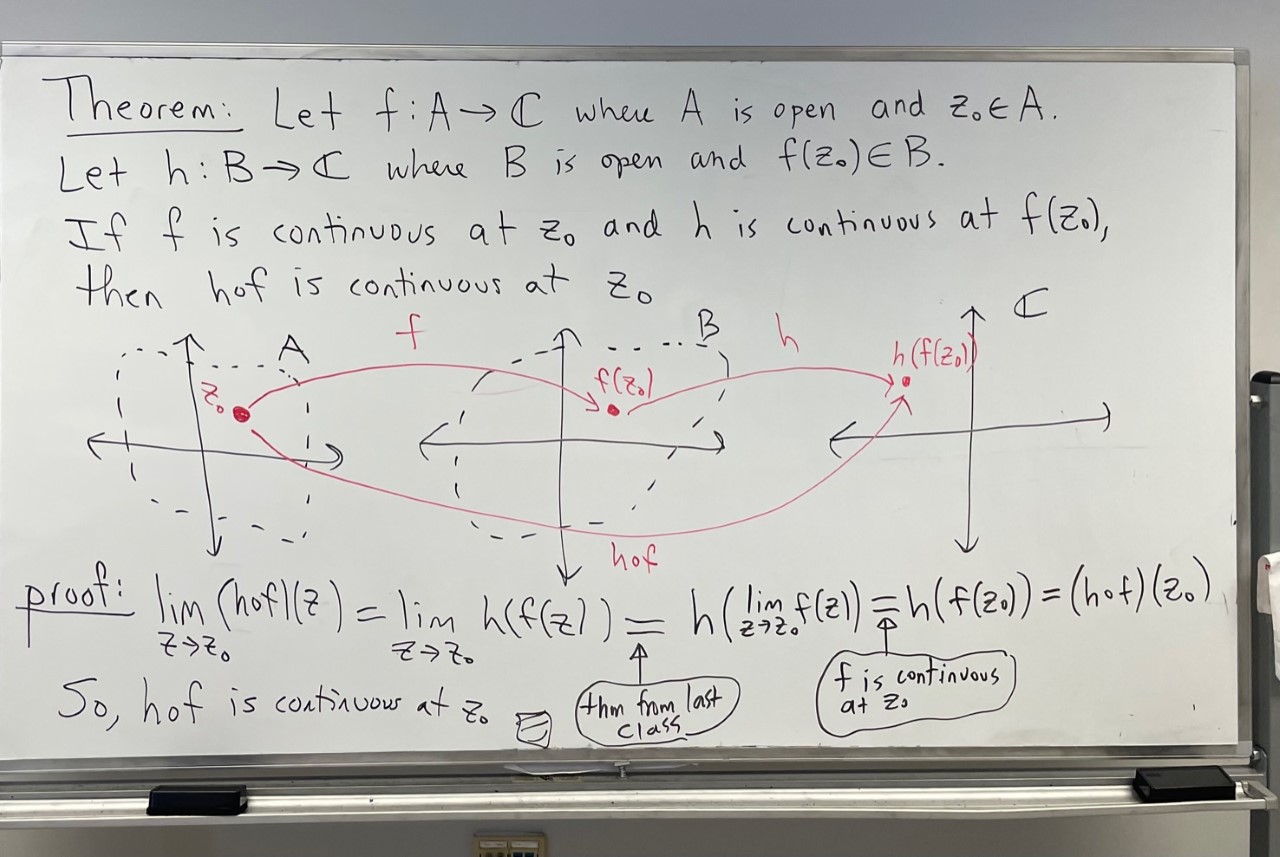 Theorem: Let f:A→ℂ where A is open and z₀∈A.
Let h:B→ℂ where B is open and f(z₀)∈B.
If f is continuous at z₀ and h is continuous at f(z₀),
then h∘f is continuous at z₀
A
f
B
h
ℂ
z₀
f(z₀)
h(f(z₀))
h∘f
proof: lim_{z→z₀} (h∘f)(z) = lim_{z→z₀} h(f(z)) = h(lim_{z→z₀} f(z)) = h(f(z₀)) = (h∘f)(z₀)
thm from last
class
f is continuous
at z₀
So, h∘f is continuous at z₀